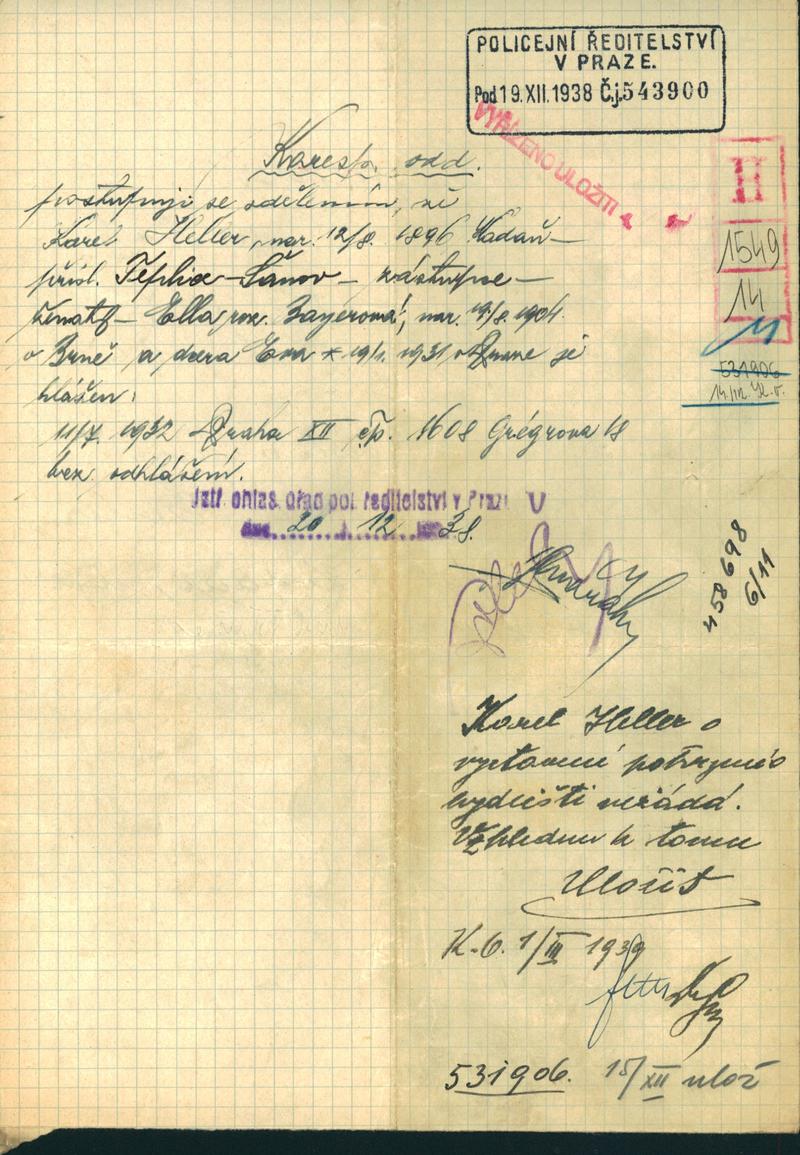 POLICEJNÍ ŘEDITELSTVÍ
V PRAZE.
Pod 19.XII.1938 Č.j. 543900
VYŘÍZENO ULOŽITI
H
1549
14
531906
Koresp. odd.
postupuji se sdělením, že
Karel Heller, nar. 12/8. 1896 Kadaň –
přísl. Teplice – Šanov – zástupce –
ženatý – Ella roz. Bayerová, nar. 19/8. 1904
v Brně a dcera Eva * 19/1. 1931 v Praze je
hlášen:
11/7. 1932 Praha XII čp. 1608 Grégrova 18
bez odhlášení.
Ústř. ohlaš. úřad pol. ředitelství v Praze
dne 20 / 12 1938.
458698
6/11
Karel Heller o
vystavení potvrzení o
bydlišti nežádá.
Vzhledem k tomu
Uložit
K.6. 1/III 1939
531906. 15/XII ulož